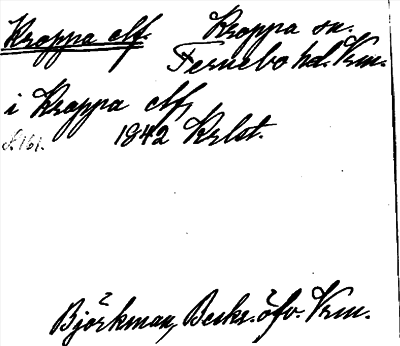 Kroppa elf. Kroppa sn.
Fernebo hd. Vrm.
i Kroppa elf
s. 161. 1842 Krlst.
Björkman, Beskr. öfv. Vrm.